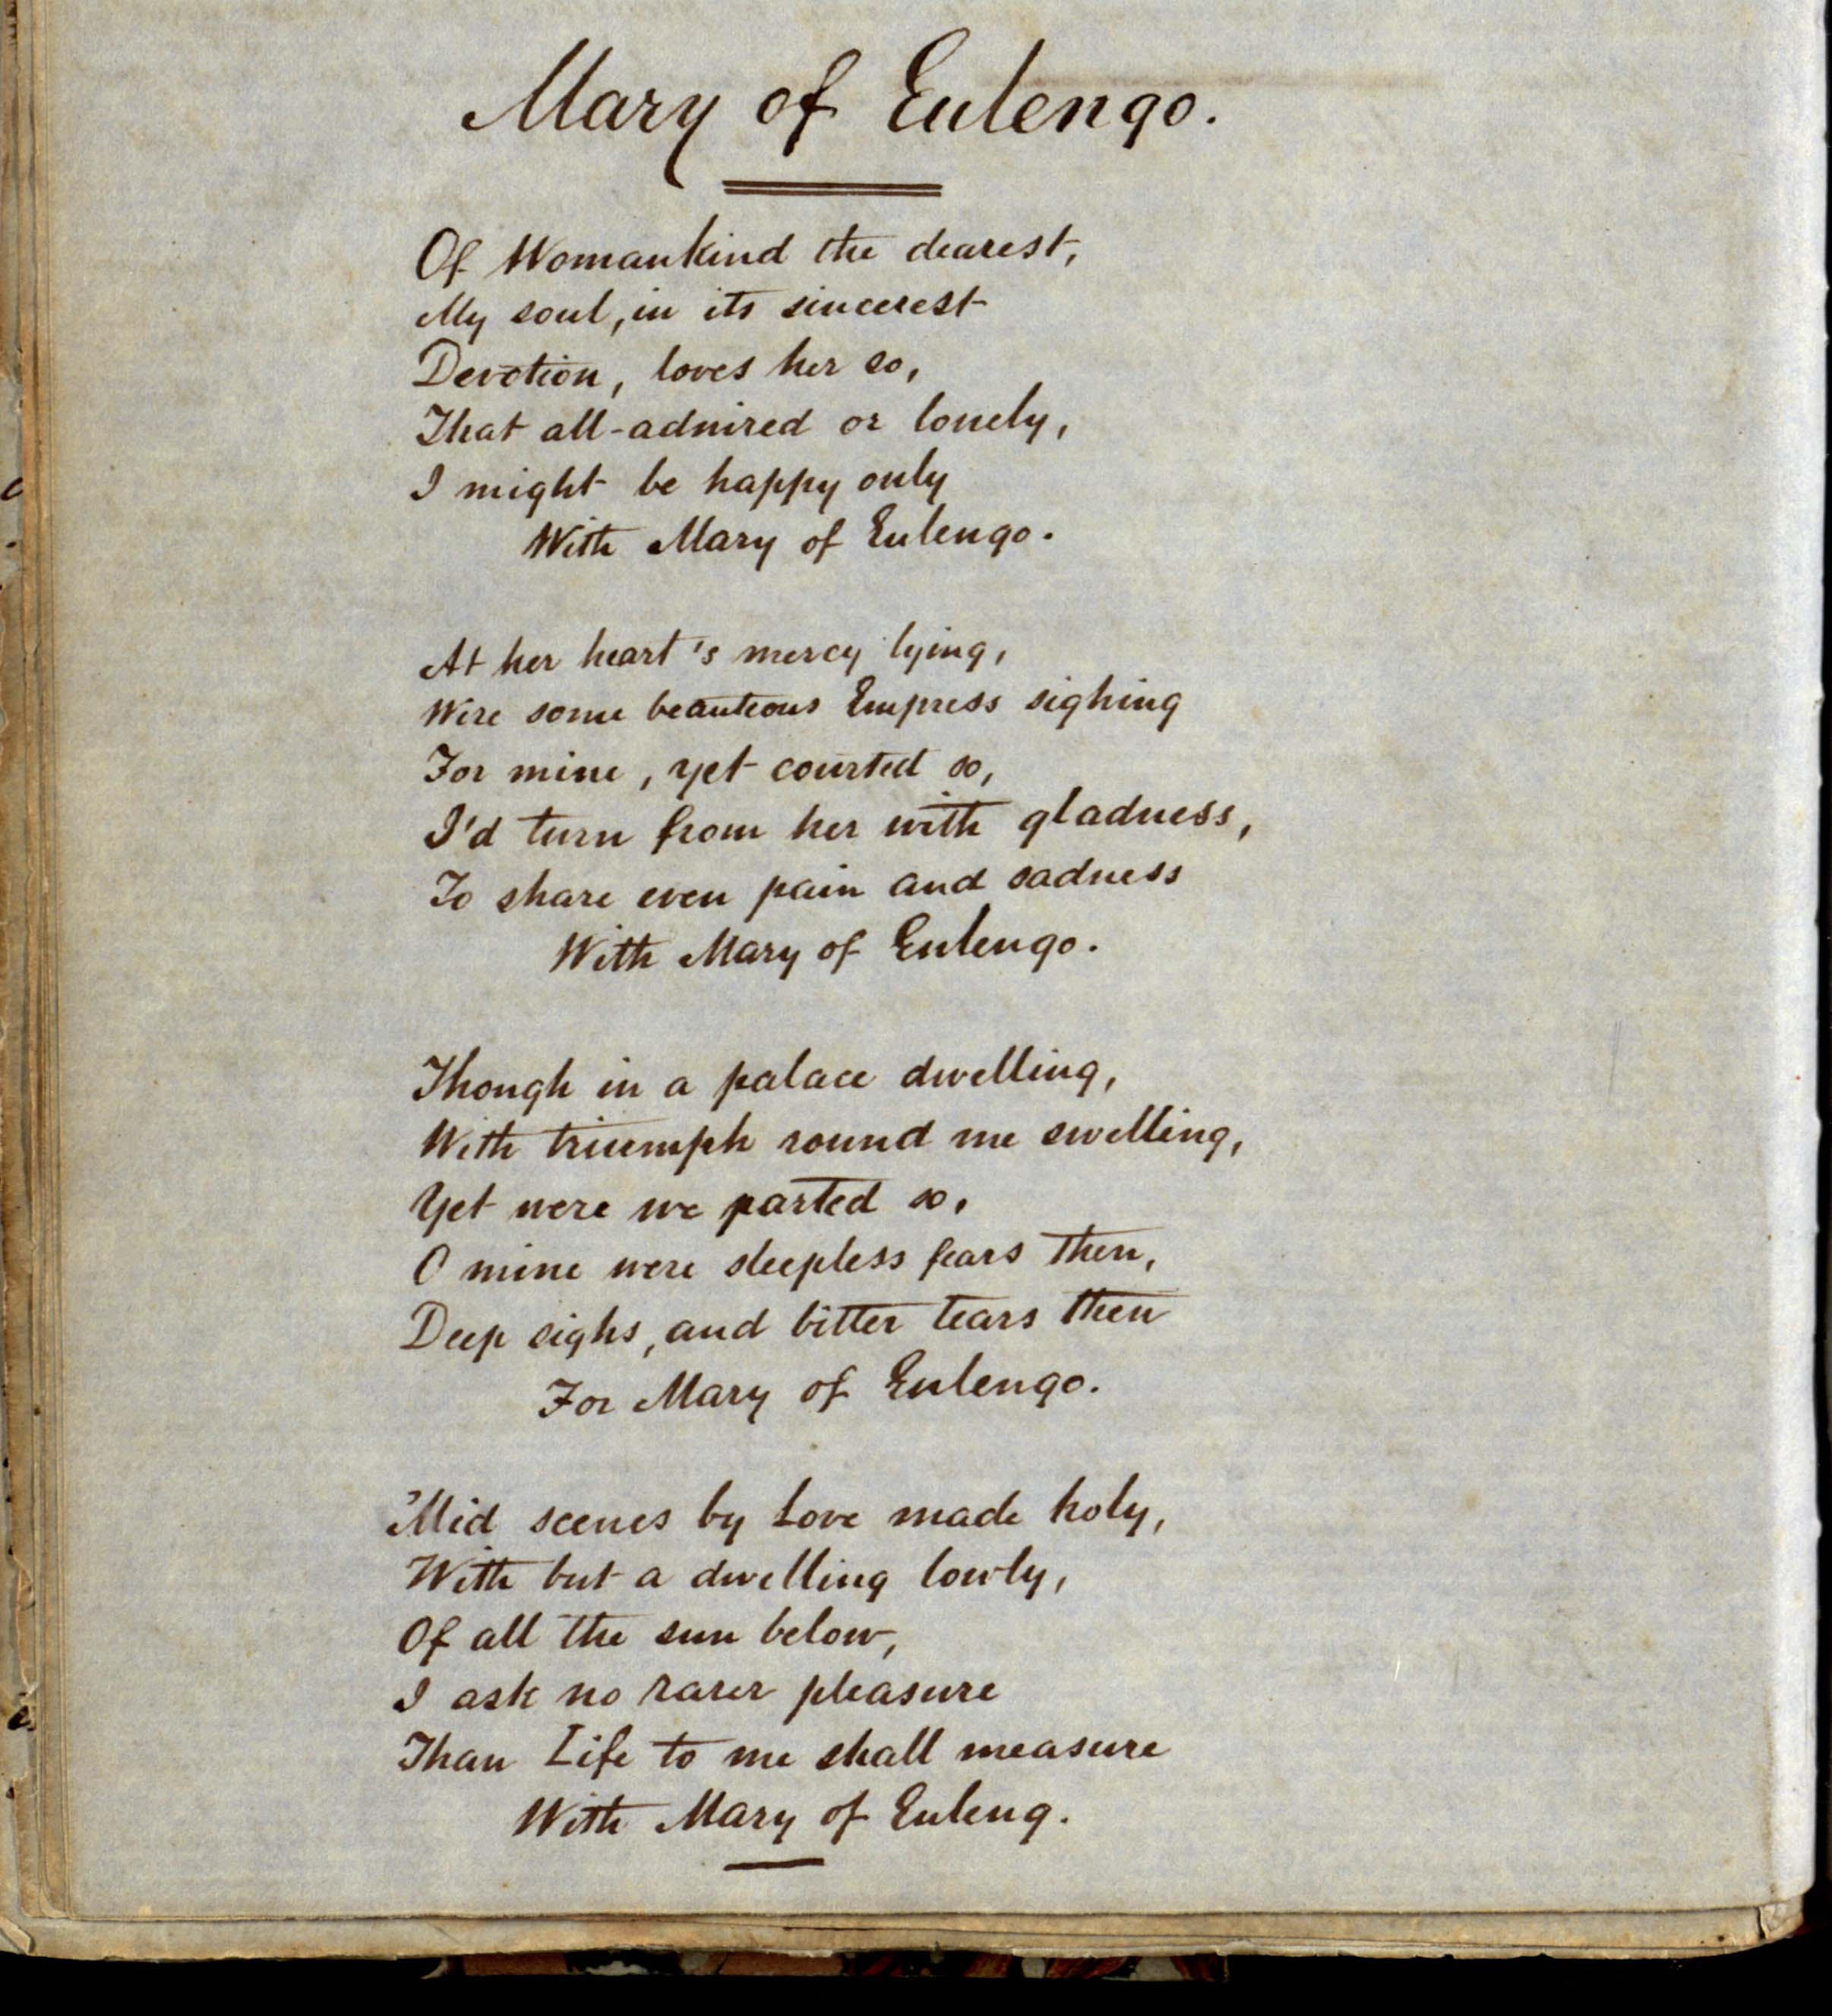 Mary of Eulengo.
Of Womankind the dearest,
My soul, in its sincerest
Devotion, loves her so,
That all-admired or lonely,
I might be happy only
With Mary of Eulengo.
At her heart's mercy lying,
Were some beauteous Empress sighing
For mine, yet courted so,
I'd turn from her with gladness,
To share even pain and sadness
With Mary of Eulengo.
Though in a palace dwelling,
With triumph round me swelling,
Yet were we parted so,
O mine were sleepless fears then,
Deep sighs, and bitter tears then
For Mary of Eulengo.
'Mid scenes by Love made holy,
With but a dwelling lowly,
Of all the sun below,
I ask no rarer pleasure
Than Life to me shall measure
With Mary of Euleng.